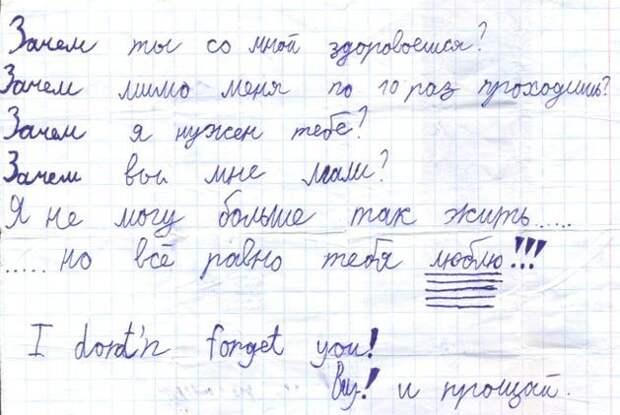 Зачем ты со мной здоровоешся?
Зачем мимо меня по 10 раз проходишь?
Зачем я нужен тебе?
Зачем вы мне лгали?
Я не могу больше так жить.....
..... но всё равно тебя люблю!!!
I dont'n forget you!
Buy! и прощай.